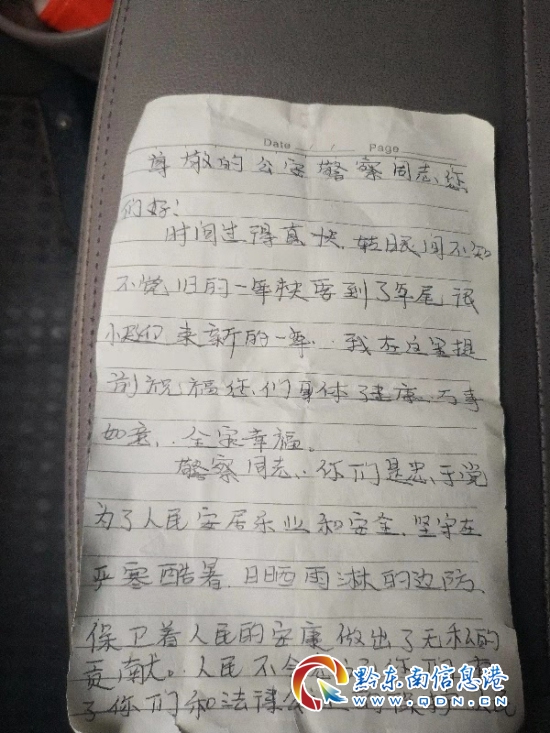 Date / / Page
尊敬的公安警察同志、您
们好!
时间过得真快、转眼间不知
不觉旧的一年快要到了年尾
来新的一年、我在这里提
别祝福您们身体健康、万事
如意、全家幸福。
警察同志、你们是忠于党
为了人民安居乐业和安全、坚守在
严寒酷暑、日晒雨淋的边防、
保卫着人民的安康做出了无私的
贡献。人民不会
了你们和法律
黔东南信息港
WWW.QDN.CN